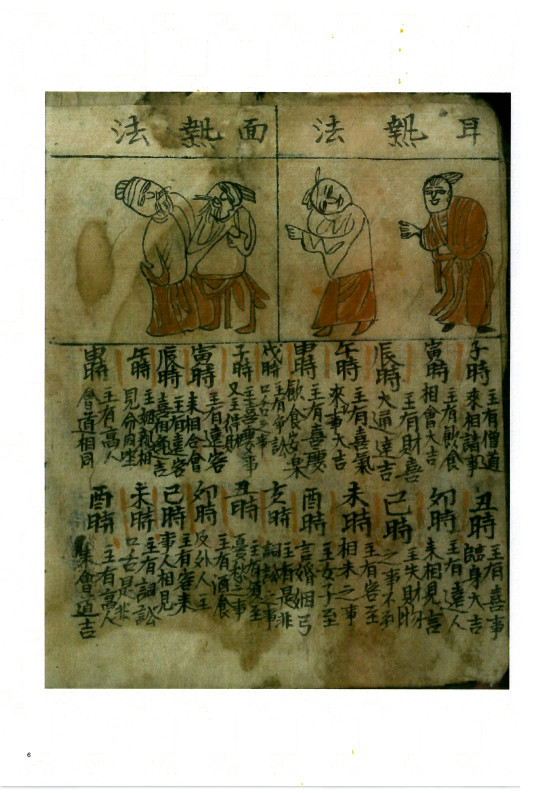 耳熱法
面熱法
子時
主有僧道
來相請事
寅時
主有飲食
相會大吉
辰時
主有財喜
大通達吉
午時
主有喜氣
來事大吉
申時
主有喜慶
飲食安樂
戌時
主有爭訟
口舌之事
子時
主喜慶事
又主得財
寅時
主有遠客
來相合會
辰時
主有遠客
喜相見吉
午時
主姻親相
申時
主有高人
會道相同
丑時
主有喜事
臨身大吉
卯時
主有遠人
來相見言
巳時
主失財
之事不利
未時
主有客至
相求之事
酉時
主女子至
言婚姻
亥時
主有是非
詞訟之事
丑時
主有至
之事
卯時
主有酒食
及外人主
巳時
主有客來
事人相見
未時
主有詞訟
口舌是非
酉時
主有高人
來會道吉
6